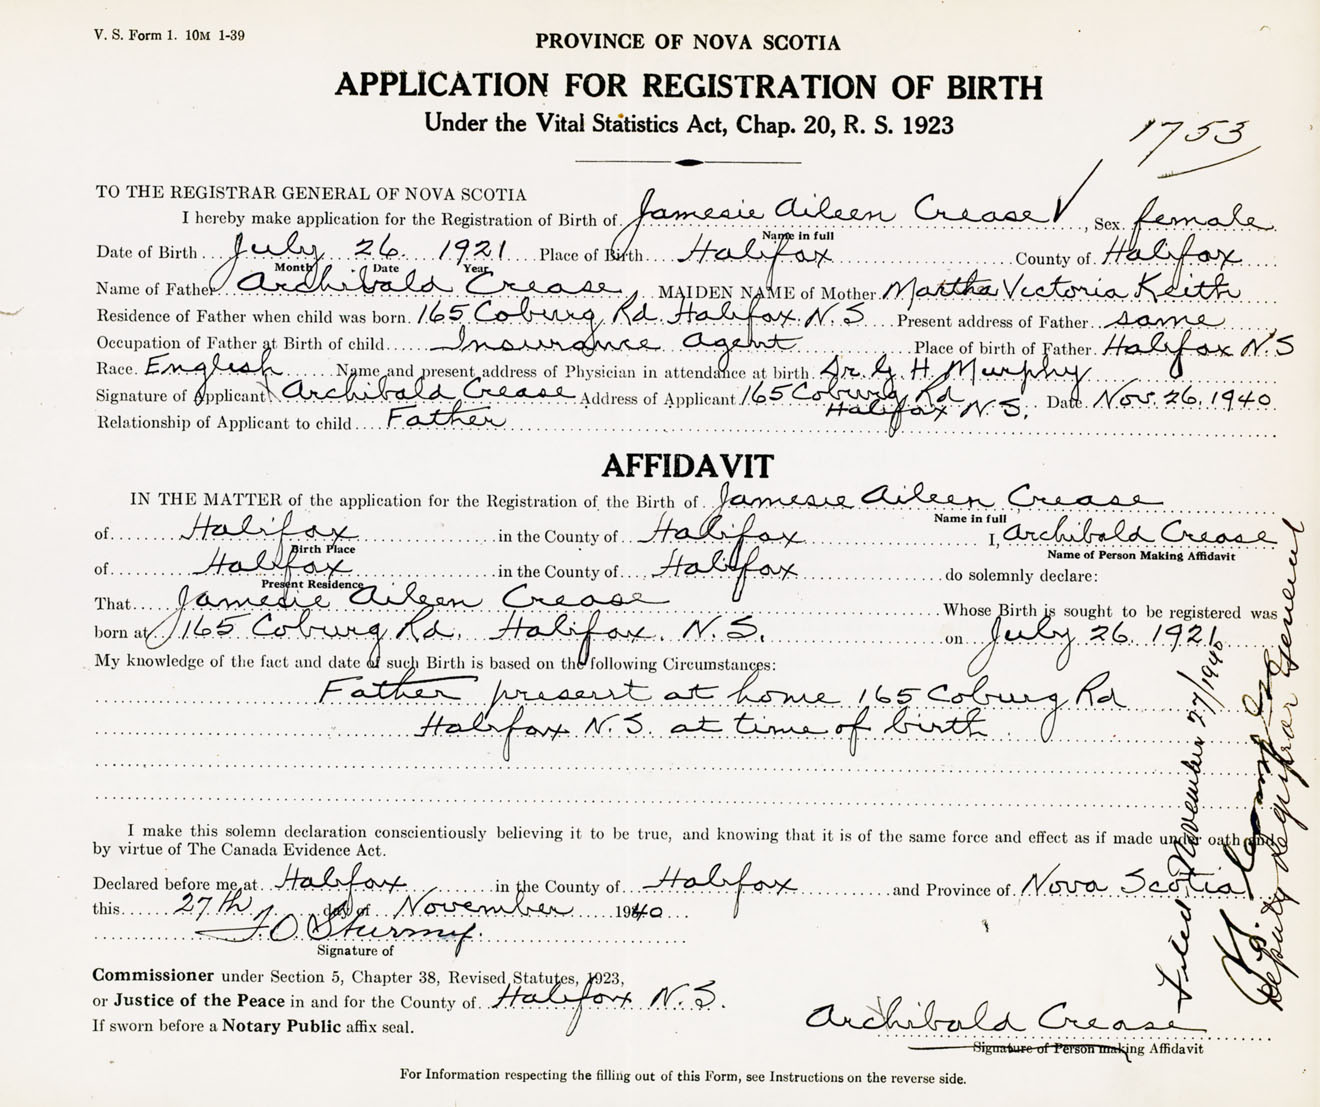 V. S. Form 1. 10M 1-39
PROVINCE OF NOVA SCOTIA
APPLICATION FOR REGISTRATION OF BIRTH
Under the Vital Statistics Act, Chap. 20, R. S. 1923
1753
TO THE REGISTRAR GENERAL OF NOVA SCOTIA
I hereby make application for the Registration of Birth of Jamesie Aileen Crease, Sex female
Name in full
Date of Birth July 26 1921 Place of Birth Halifax County of Halifax
Month Date Year
Name of Father Archibald Crease, MAIDEN NAME of Mother Martha Victoria Keith
Residence of Father when child was born 165 Coburg Rd. Halifax N.S Present address of Father same
Occupation of Father at Birth of child Insurance agent Place of birth of Father Halifax N.S
Race English Name and present address of Physician in attendance at birth Dr. G. H. Murphy
Signature of Applicant Archibald Crease Address of Applicant 165 Coburg Rd Halifax N.S. Date Nov. 26, 1940
Relationship of Applicant to child Father
AFFIDAVIT
IN THE MATTER of the application for the Registration of the Birth of Jamesie Aileen Crease
Name in full
of Halifax in the County of Halifax I, Archibald Crease
Birth Place Name of Person Making Affidavit
of Halifax in the County of Halifax do solemnly declare:
Present Residence
That Jamesie Aileen Crease Whose Birth is sought to be registered was
born at 165 Coburg Rd. Halifax. N.S. on July 26 1921
My knowledge of the fact and date of such Birth is based on the following Circumstances:
Father present at home 165 Coburg Rd
Halifax N.S. at time of birth
I make this solemn declaration conscientiously believing it to be true, and knowing that it is of the same force and effect as if made under oath and
by virtue of The Canada Evidence Act.
Declared before me at Halifax in the County of Halifax and Province of Nova Scotia
this 27th day of November 1940
Signature of
Commissioner under Section 5, Chapter 38, Revised Statutes, 1923,
or Justice of the Peace in and for the County of Halifax N.S.
If sworn before a Notary Public affix seal.
Archibald Crease
Signature of Person making Affidavit
For Information respecting the filling out of this Form, see Instructions on the reverse side.
Filed November 27/1940
Deputy Registrar General